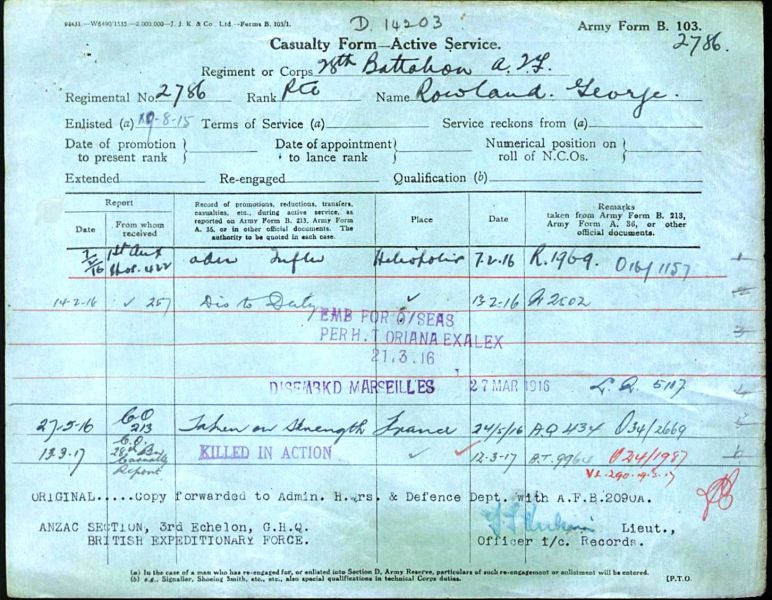 94431.—W6490/1535.—2,000,000—J. J. K. & Co. Ltd.—Forms B. 103/1.
D. 14203
Army Form B. 103.
2786.
Casualty Form—Active Service.
Regiment or Corps 28th Battalion A.I.F.
Regimental No. 2786 Rank Pte Name Rowland. George.
Enlisted (a) 19-8-15 Terms of Service (a) Service reckons from (a)
Date of promotion to present rank } Date of appointment to lance rank } Numerical position on roll of N.C.Os. }
Extended Re-engaged Qualification (b)
Report
Date
From whom received
Record of promotions, reductions, transfers, casualties, etc., during active service, as reported on Army Form B. 213, Army Form A. 36, or in other official documents. The authority to be quoted in each case.
Place
Date
Remarks taken from Army Form B. 213, Army Form A. 36, or other official documents.
7/2/16 1st Aux Hos. 422 aden Influ Heliopolis 7.2.16 R.1969. O16/1157
14-2-16 ✓ 257 Dis to Duty ✓ 13-2-16 A 2502
EMB FOR O/SEAS
PER H.T ORIANA EXALEX
21.3.16
DISEMBKD MARSEILLES 27 MAR 1916 5117
27-5-16 C.O 213 Taken on Strength France 24/5/16 A.Q 434 O34/2669
12.3.17 C.O. 28th Bn Casualty Report KILLED IN ACTION ✓ 12-3-17 B.T. 9964 O24/1987
ORIGINAL.....Copy forwarded to Admin. H.qrs. & Defence Dept. with A.F.B.2090A.
ANZAC SECTION, 3rd Echelon, G.H.Q. Lieut.,
BRITISH EXPEDITIONARY FORCE. Officer i/c. Records.
(a) In the case of a man who has re-engaged for, or enlisted into Section D, Army Reserve, particulars of such re-engagement or enlistment will be entered.
(b) e.g., Signaller, Shoeing Smith, etc., etc., also special qualifications in technical Corps duties. [P.T.O.